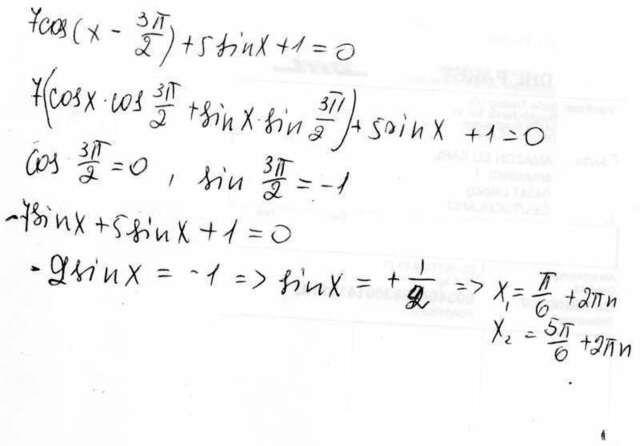 7cos(x - 3π/2) + 5sinx + 1 = 0
7(cosx · cos 3π/2 + sinx · sin 3π/2) + 5sinx + 1 = 0
cos 3π/2 = 0 , sin 3π/2 = -1
-7sinx + 5sinx + 1 = 0
-2sinx = -1 => sinx = + 1/2 => x₁ = π/6 + 2πn
x₂ = 5π/6 + 2πn